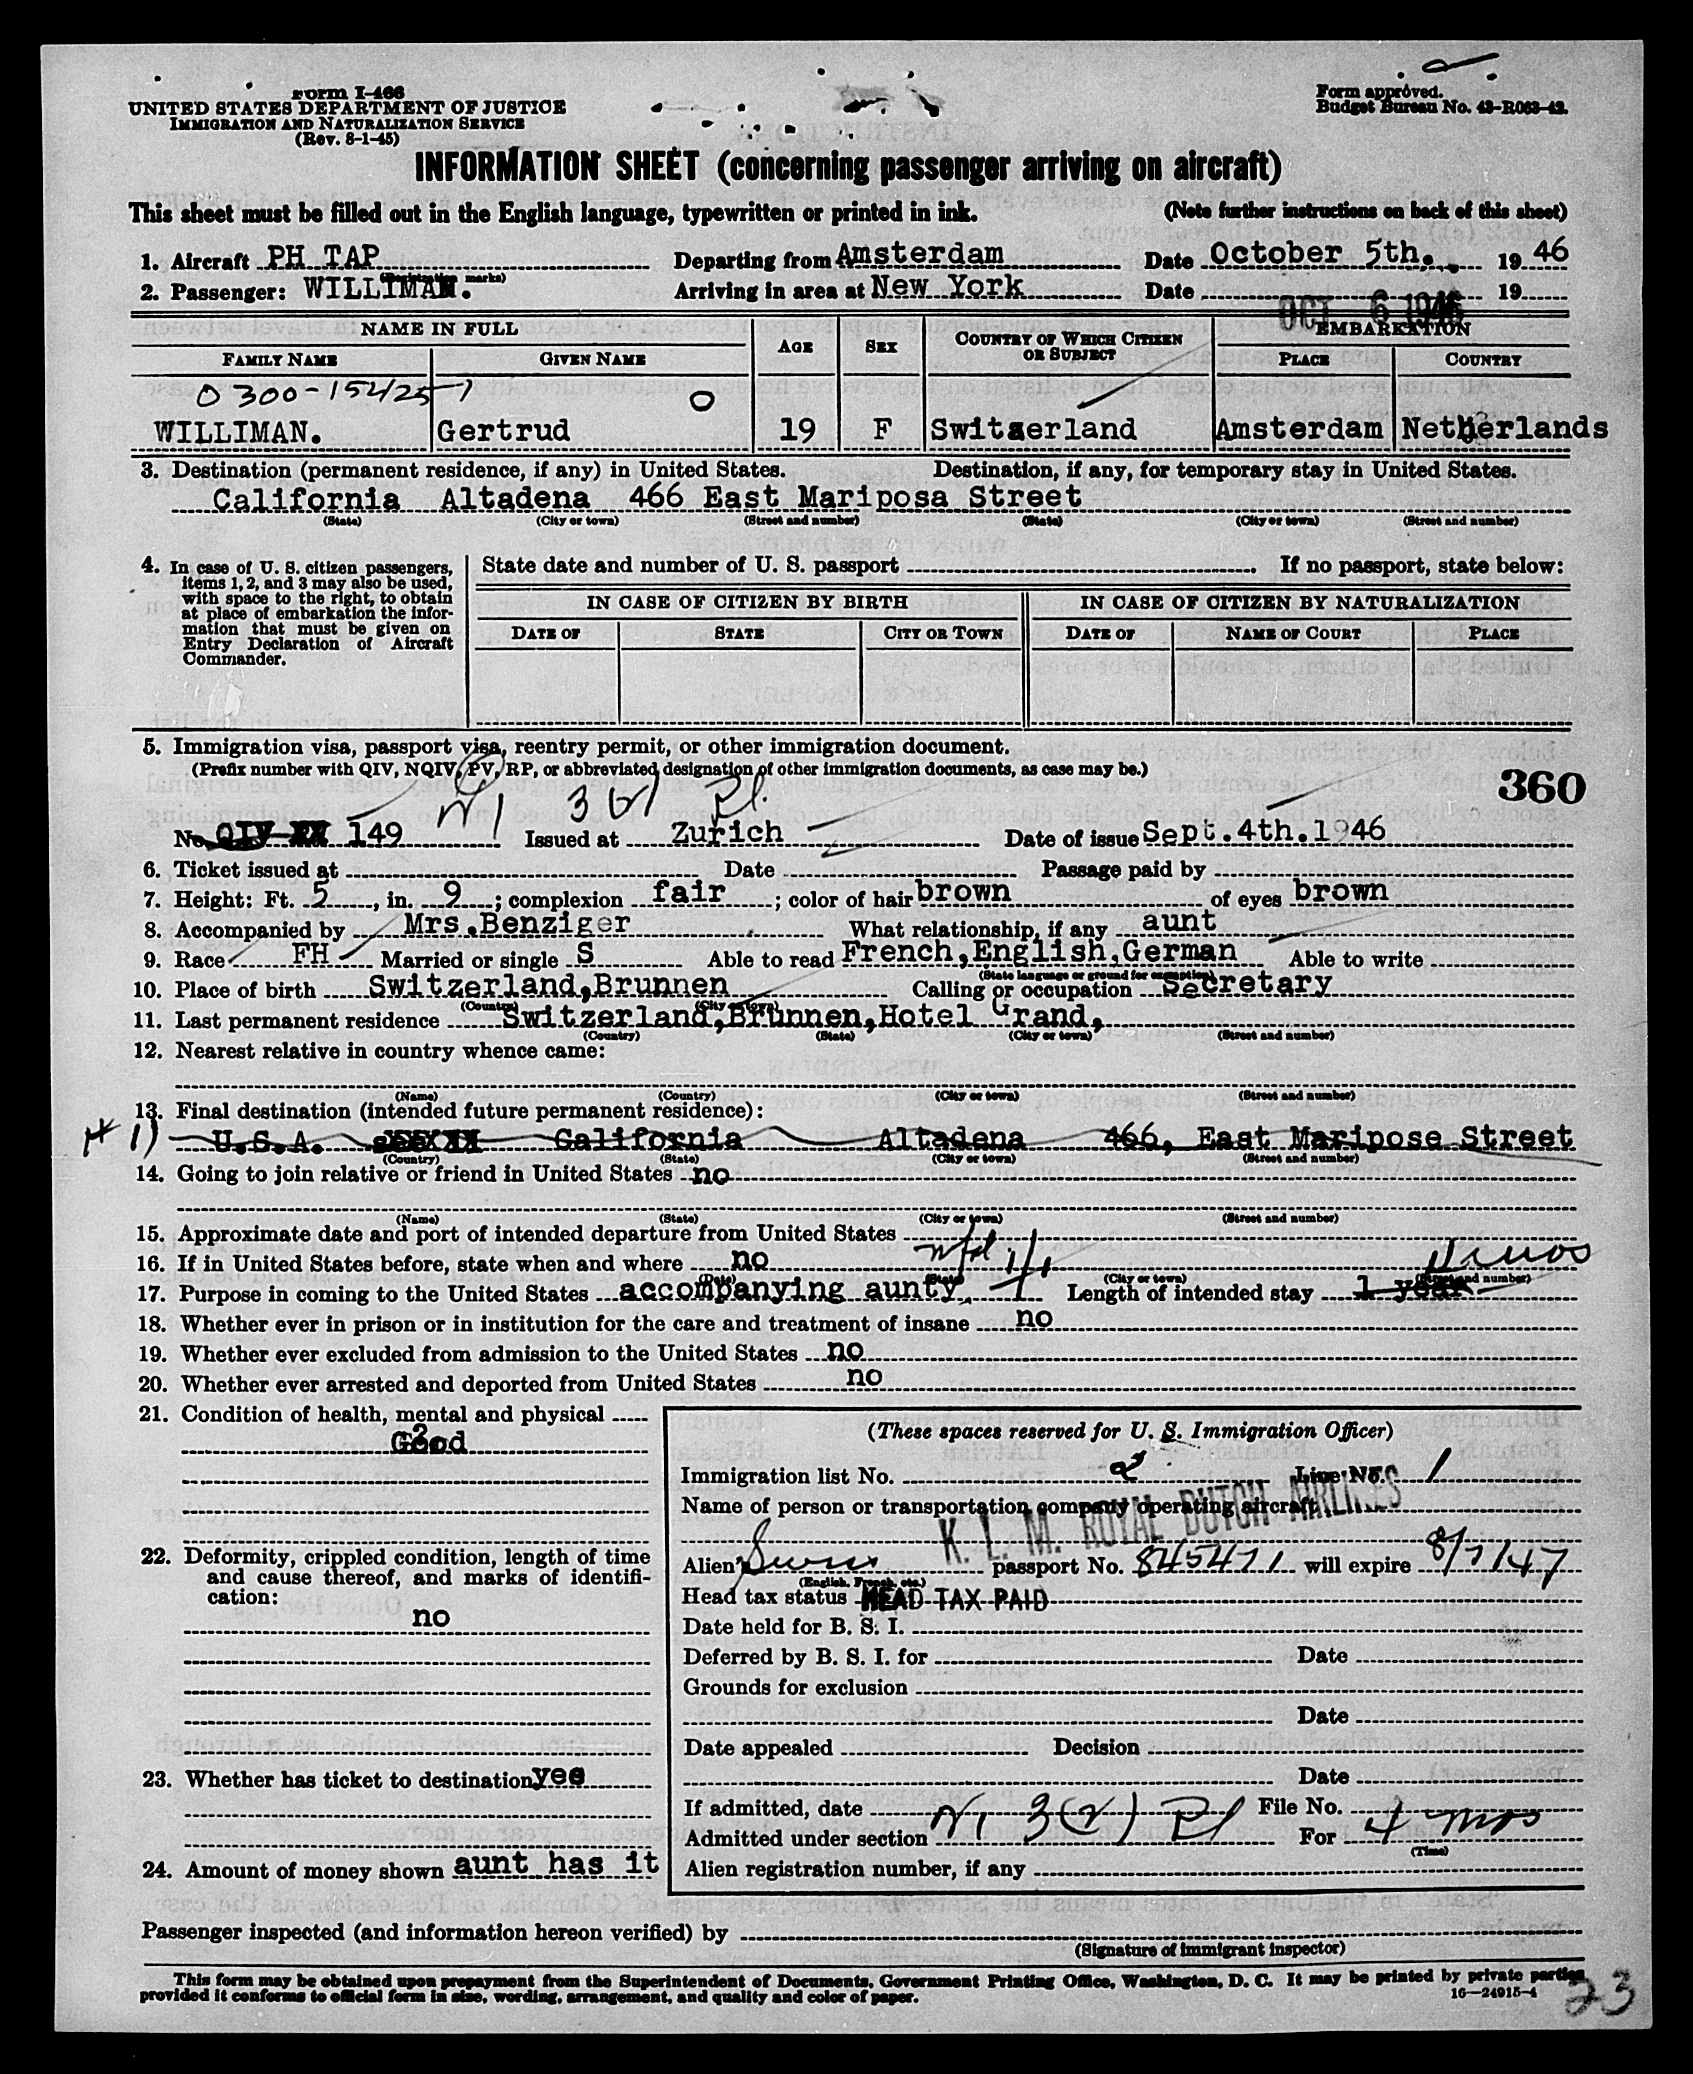 Form I-466
UNITED STATES DEPARTMENT OF JUSTICE
IMMIGRATION AND NATURALIZATION SERVICE
(Rev. 8-1-45)
Form approved.
Budget Bureau No. 43-R063-42.
INFORMATION SHEET (concerning passenger arriving on aircraft)
This sheet must be filled out in the English language, typewritten or printed in ink. (Note further instructions on back of this sheet)
1. Aircraft PH TAP Departing from Amsterdam Date October 5th. 19 46
(Registration marks)
2. Passenger: WILLIMAN. Arriving in area at New York Date 19
OCT 6 1946
NAME IN FULL AGE SEX COUNTRY OF WHICH CITIZEN OR SUBJECT EMBARKATION
FAMILY NAME GIVEN NAME PLACE COUNTRY
0 300-154251 0
WILLIMAN. Gertrud 19 F Switzerland Amsterdam Netherlands
3. Destination (permanent residence, if any) in United States. Destination, if any, for temporary stay in United States.
California Altadena 466 East Mariposa Street
(State) (City or town) (Street and number) (State) (City or town) (Street and number)
4. In case of U. S. citizen passengers, items 1, 2, and 3 may also be used, with space to the right, to obtain at place of embarkation the information that must be given on Entry Declaration of Aircraft Commander.
State date and number of U. S. passport If no passport, state below:
IN CASE OF CITIZEN BY BIRTH IN CASE OF CITIZEN BY NATURALIZATION
DATE OF STATE CITY OR TOWN DATE OF NAME OF COURT PLACE
5. Immigration visa, passport visa, reentry permit, or other immigration document.
(Prefix number with QIV, NQIV, PV, RP, or abbreviated designation of other immigration documents, as case may be.)
360
No. QIV 149 Issued at Zurich Date of issue Sept.4th.1946
6. Ticket issued at Date Passage paid by
7. Height: Ft. 5, in. 9; complexion fair; color of hair brown of eyes brown
8. Accompanied by Mrs.Benziger What relationship, if any aunt
9. Race FH Married or single S Able to read French,English,German Able to write
(State language or ground for exemption)
10. Place of birth Switzerland,Brunnen Calling or occupation Secretary
(Country) (City or town)
11. Last permanent residence Switzerland,Brunnen,Hotel Grand,
(Country) (State) (City or town) (Street and number)
12. Nearest relative in country whence came:
(Name) (Country) (City or town) (Street and number)
13. Final destination (intended future permanent residence):
U.S.A. California Altadena 466, East Maripose Street
(Country) (State) (City or town) (Street and number)
14. Going to join relative or friend in United States no
(Name) (State) (City or town) (Street and number)
15. Approximate date and port of intended departure from United States
16. If in United States before, state when and where no
(Date) (State) (City or town) (Street and number)
17. Purpose in coming to the United States accompanying aunty Length of intended stay 1 year
18. Whether ever in prison or in institution for the care and treatment of insane no
19. Whether ever excluded from admission to the United States no
20. Whether ever arrested and deported from United States no
21. Condition of health, mental and physical
Good
22. Deformity, crippled condition, length of time and cause thereof, and marks of identification:
no
23. Whether has ticket to destination yes
24. Amount of money shown aunt has it
(These spaces reserved for U. S. Immigration Officer)
Immigration list No. 2 Line No. 1
Name of person or transportation company operating aircraft
K. L. M. ROYAL DUTCH AIRLINES
Alien Swiss passport No. 845471 will expire 8/7/47
(English, French, etc.)
Head tax status HEAD TAX PAID
Date held for B. S. I.
Deferred by B. S. I. for Date
Grounds for exclusion
Date
Date appealed Decision
Date
If admitted, date File No.
Admitted under section 3(2) For 4 mos
(Time)
Alien registration number, if any
Passenger inspected (and information hereon verified) by
(Signature of immigrant inspector)
This form may be obtained upon prepayment from the Superintendent of Documents, Government Printing Office, Washington, D. C. It may be printed by private parties
provided it conforms to official form in size, wording, arrangement, and quality and color of paper.
16—24915-4
23